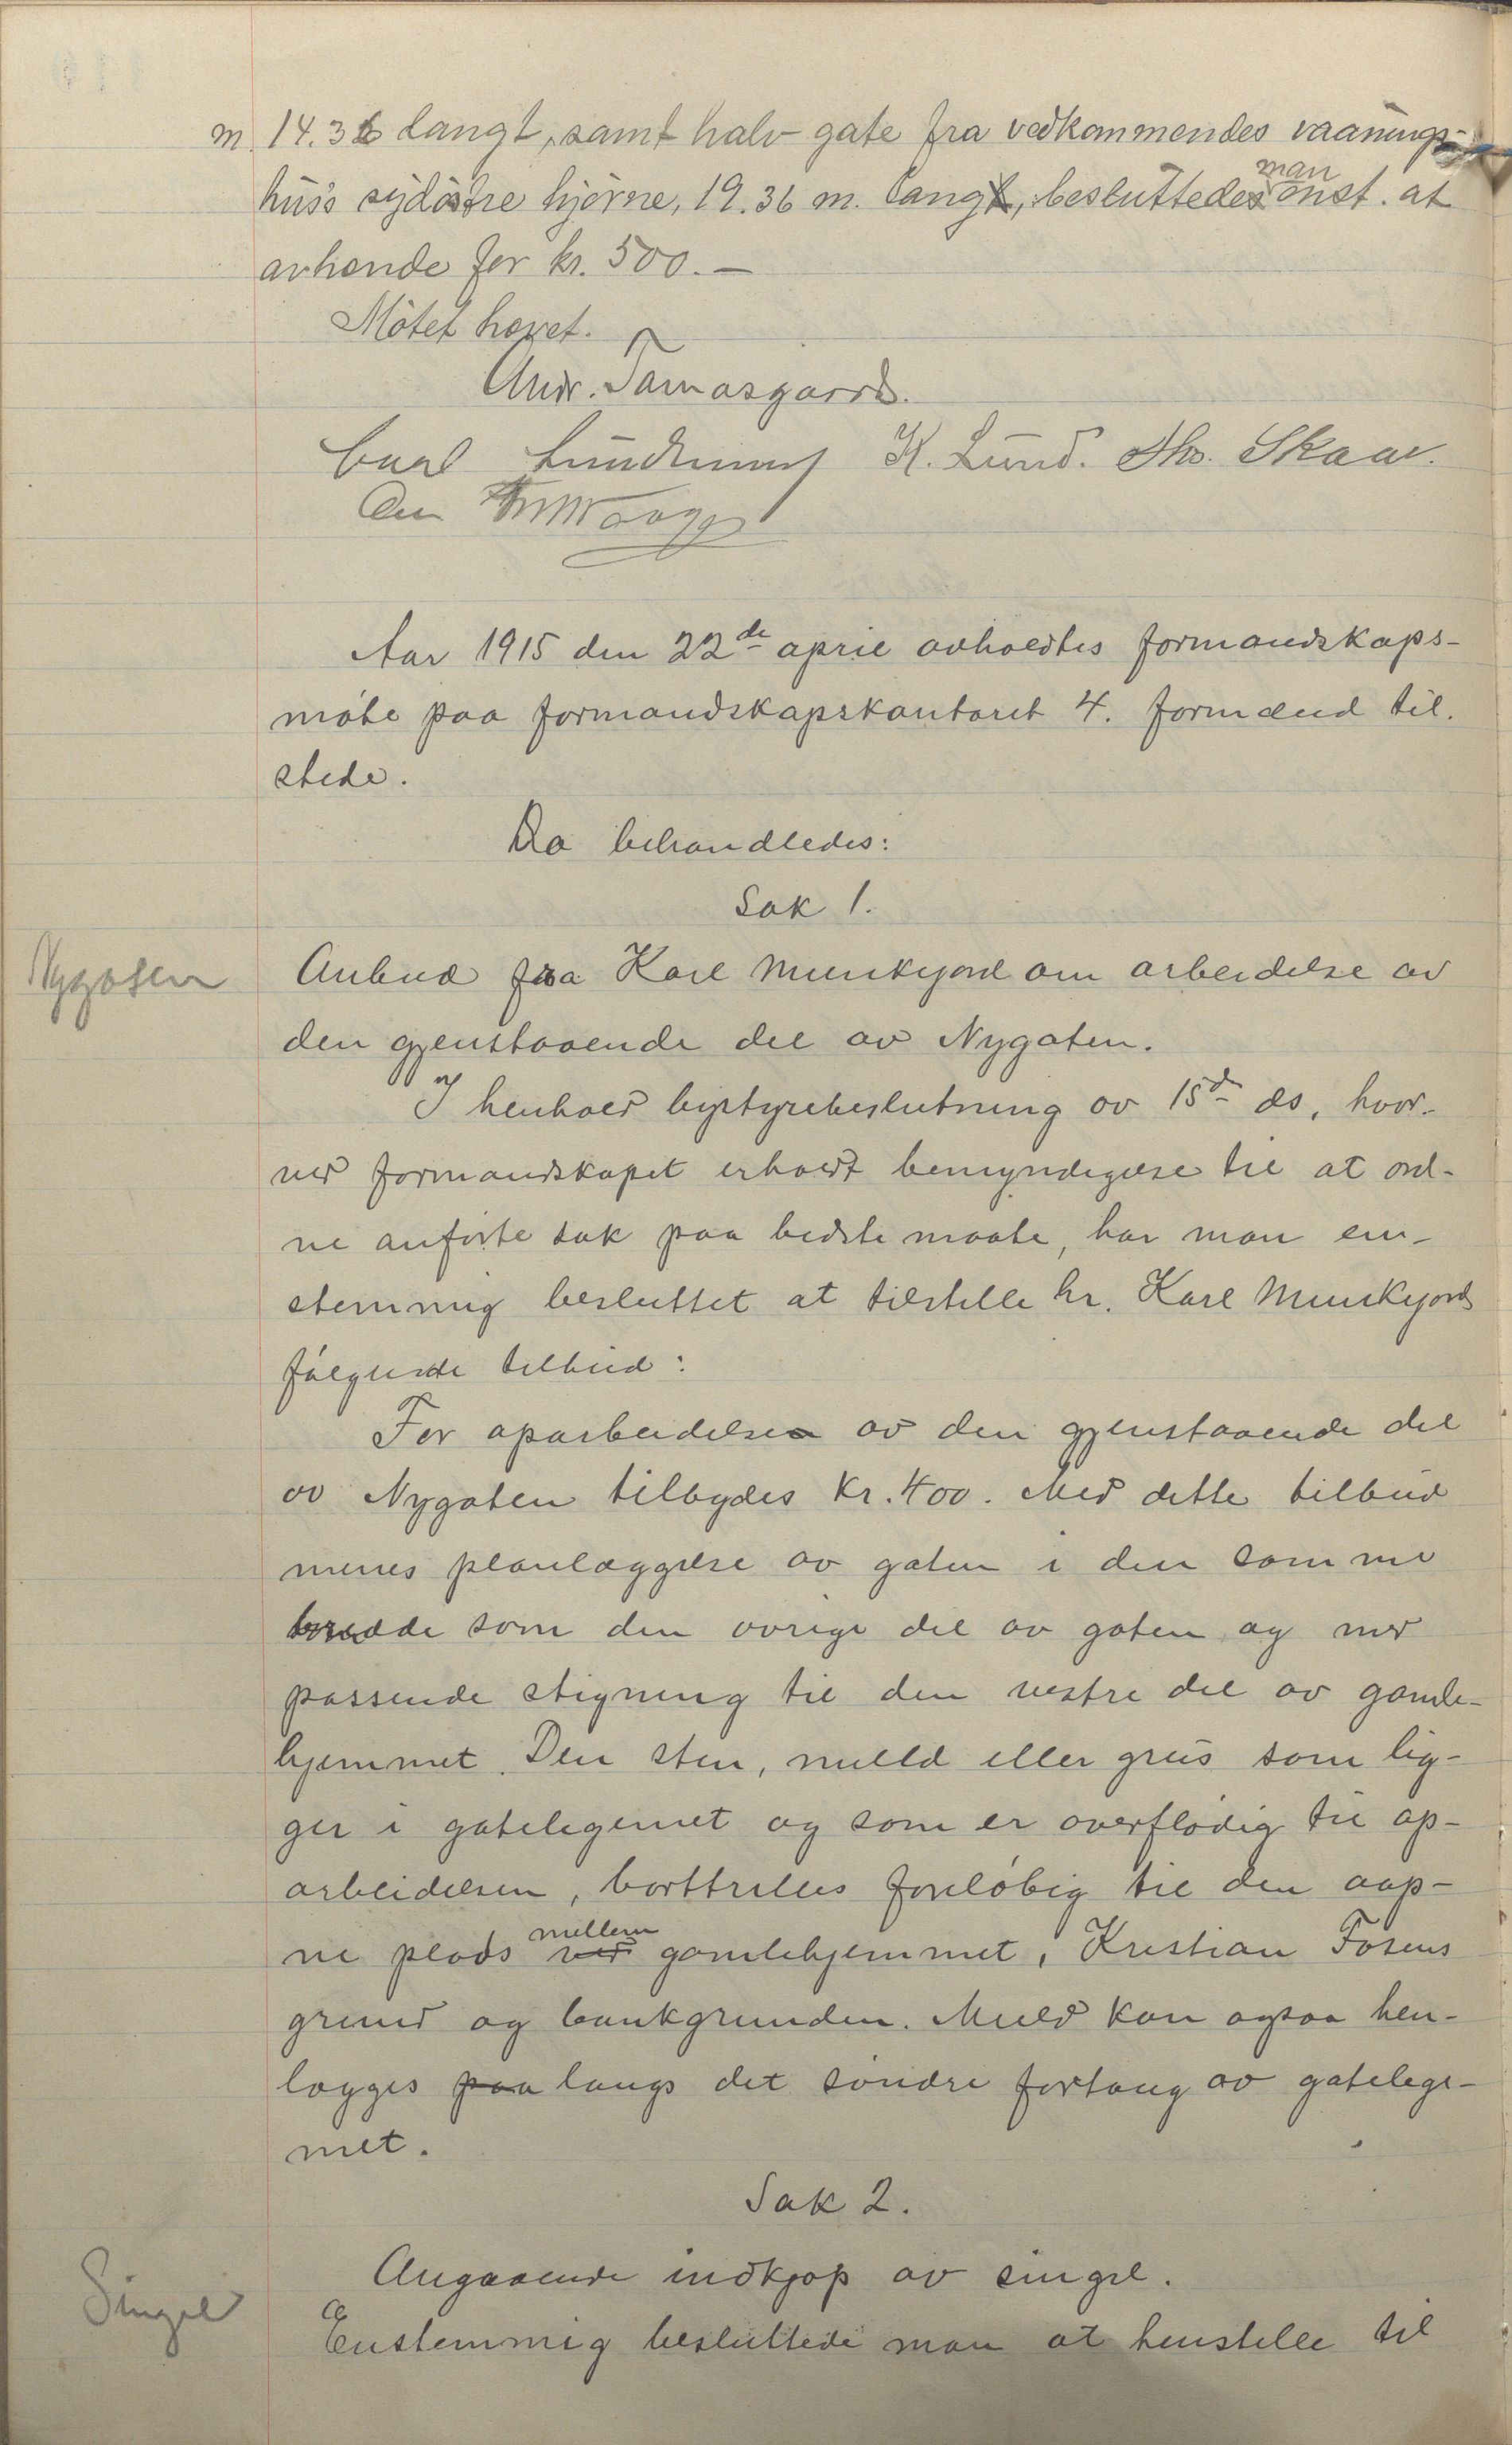 m. 14.36 langt, samt halv gate fra vedkommendes vaanings-
hus's sydøstre hjørne, 19.36 m. langt, besluttedes man enst. at
avhænde for kr. 500.—
Møtet hævet.
Andr. Tamasgaard.
Carl K. Lund. Ths. Skaar.
Aar 1915 den 22de april avholdtes formandskaps-
møte paa formandskapskontoret 4. formænd til.
stede.
Da behandledes:
Sak 1.
Nygaten
Anbud fra Karl Munkejord om arbeidelse av
den gjenstaaende del av Nygaten.
I henhold bystyrebeslutning av 15de ds, hvor-
ved formandskapet erholdt bemyndigelse til at ord-
ne anførte sak paa bedste maate, har man en-
stemmig besluttet at tilstille hr. Karl Munkejord
følgende tilbud:
For oparbeidelsen av den gjenstaaende del
av Nygaten tilbydes kr. 400. Med dette tilbud
menes planlæggelse av gaten i den samme
bredde som den øvrige del av gaten og med
passende stigning til den vestre del av gamle-
hjemmet. Den sten, muld eller grus som lig-
ger i gatelegemet og som er overflødig til op-
arbeidelsen, borttrilles foreløbig til den aap-
ne plads ved mellem gamlehjemmet, Kristian Fosens
grund og bankgrunden. Muld kan ogsaa hen-
lægges paa langs det søndre fortaug av gatelege-
met.
Sak 2.
Singel
Angaaende indkjøp av singel.
Enstemmig besluttede man at henstille til